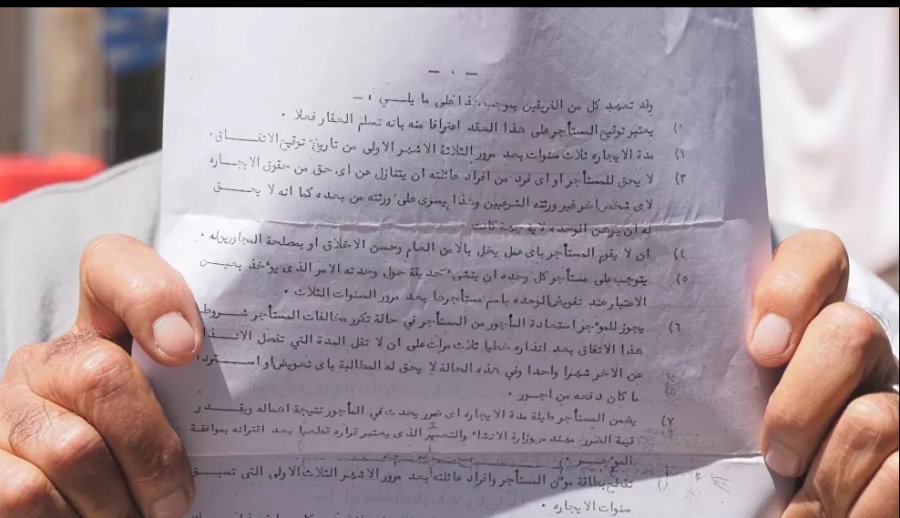 - ٠ -
وقد تعهد كل من الفريقين بموجب هذا على ما يلي :
١) يعتبر توقيع المستأجر على هذا العقد اعترافا منه بانه تسلم العقار فعلا ٠
٢) مدة الايجاره ثلاث سنوات بعد مرور الثلاثة الاشهر الاولى من تاريخ توقيع الاتفاق ٠
٣) لا يحق للمستأجر او اى فرد من افراد عائلته ان يتنازل عن اى حق من حقوق الايجاره
لاى شخص اخر غير ورثته الشرعيين وهذا يسرى على ورثته من بعده كما انه لا يحق
له ان يرهن الوحده لاية جهة كانت
٤) ان لا يقوم المستأجر باى عمل يخل بالامن العام وحسن الاخلاق او بمصلحة المجاورين له ٠
٥) يتوجب على مستأجر كل وحده ان ينشى حديقة حول وحدته الامر الذى يؤخذ بعين
الاعتبار عند تفويض الوحده باسم مستأجرها بعد مرور السنوات الثلاث ٠
٦) يجوز للمؤجر استعادة المأجور من المستأجر في حالة تكرر مخالفات المستأجر شروط
هذا الاتفاق بعد انذاره خطيا ثلاث مرات على ان لا تقل المدة التي تفصل الانذار
عن الاخر شهرا واحدا وفي هذه الحالة لا يحق له المطالبة باى تعويض او استرداد
ما كان دفعه من اجور ٠
٧) يضمن المستأجر طيلة مدة الايجاره اى ضرر يحدث في المأجور نتيجة اهماله ويقدر
قيمة الضرر مهندس وزارة الانشاء والتعمير الذى يعتبر قراره قطعيا بعد اقترانه بموافقة
المؤجر ٠
تقطع بطاقة مؤن المستأجر وافراد عائلته بعد مرور الاشهر الثلاث الاولى التي تسبق
سنوات الايجاره ٠